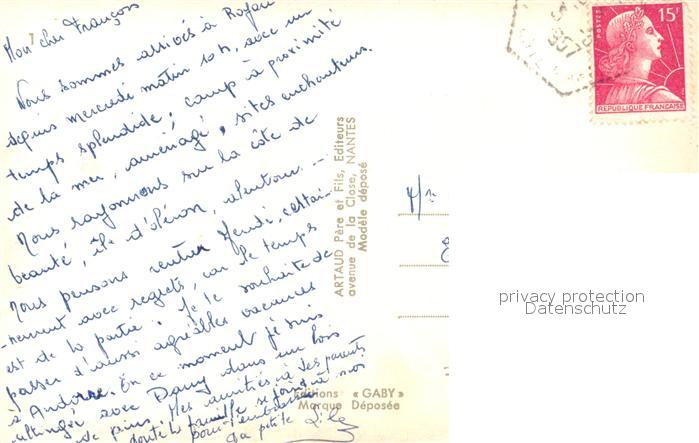 Mon cher François
Nous sommes arrivés à Royan
depuis mercredi matin 10h, avec un
temps splendide, camp à proximité
de la mer, aménagé, sites enchanteurs.
Nous rayonnons sur la côte de
beauté, île d'oléron, alentour. -
Nous pensons rentrer Jeudi, certai-
-nement avec regrets, car le temps
est de la partie. Je te souhaite de
passer d'aussi agréables vacances
à Andorre. En ce moment je suis
avec Dany dans un bois
de pins. Mes amitiés à tes parents
toute la famille se joint à moi
pour
Ta petite
ARTAUD Père et Fils, Editeurs
avenue de la Close, NANTES
Modèle déposé
Editions « GABY »
Marque Déposée
15F
POSTES
REPUBLIQUE FRANÇAISE
privacy protection
Datenschutz